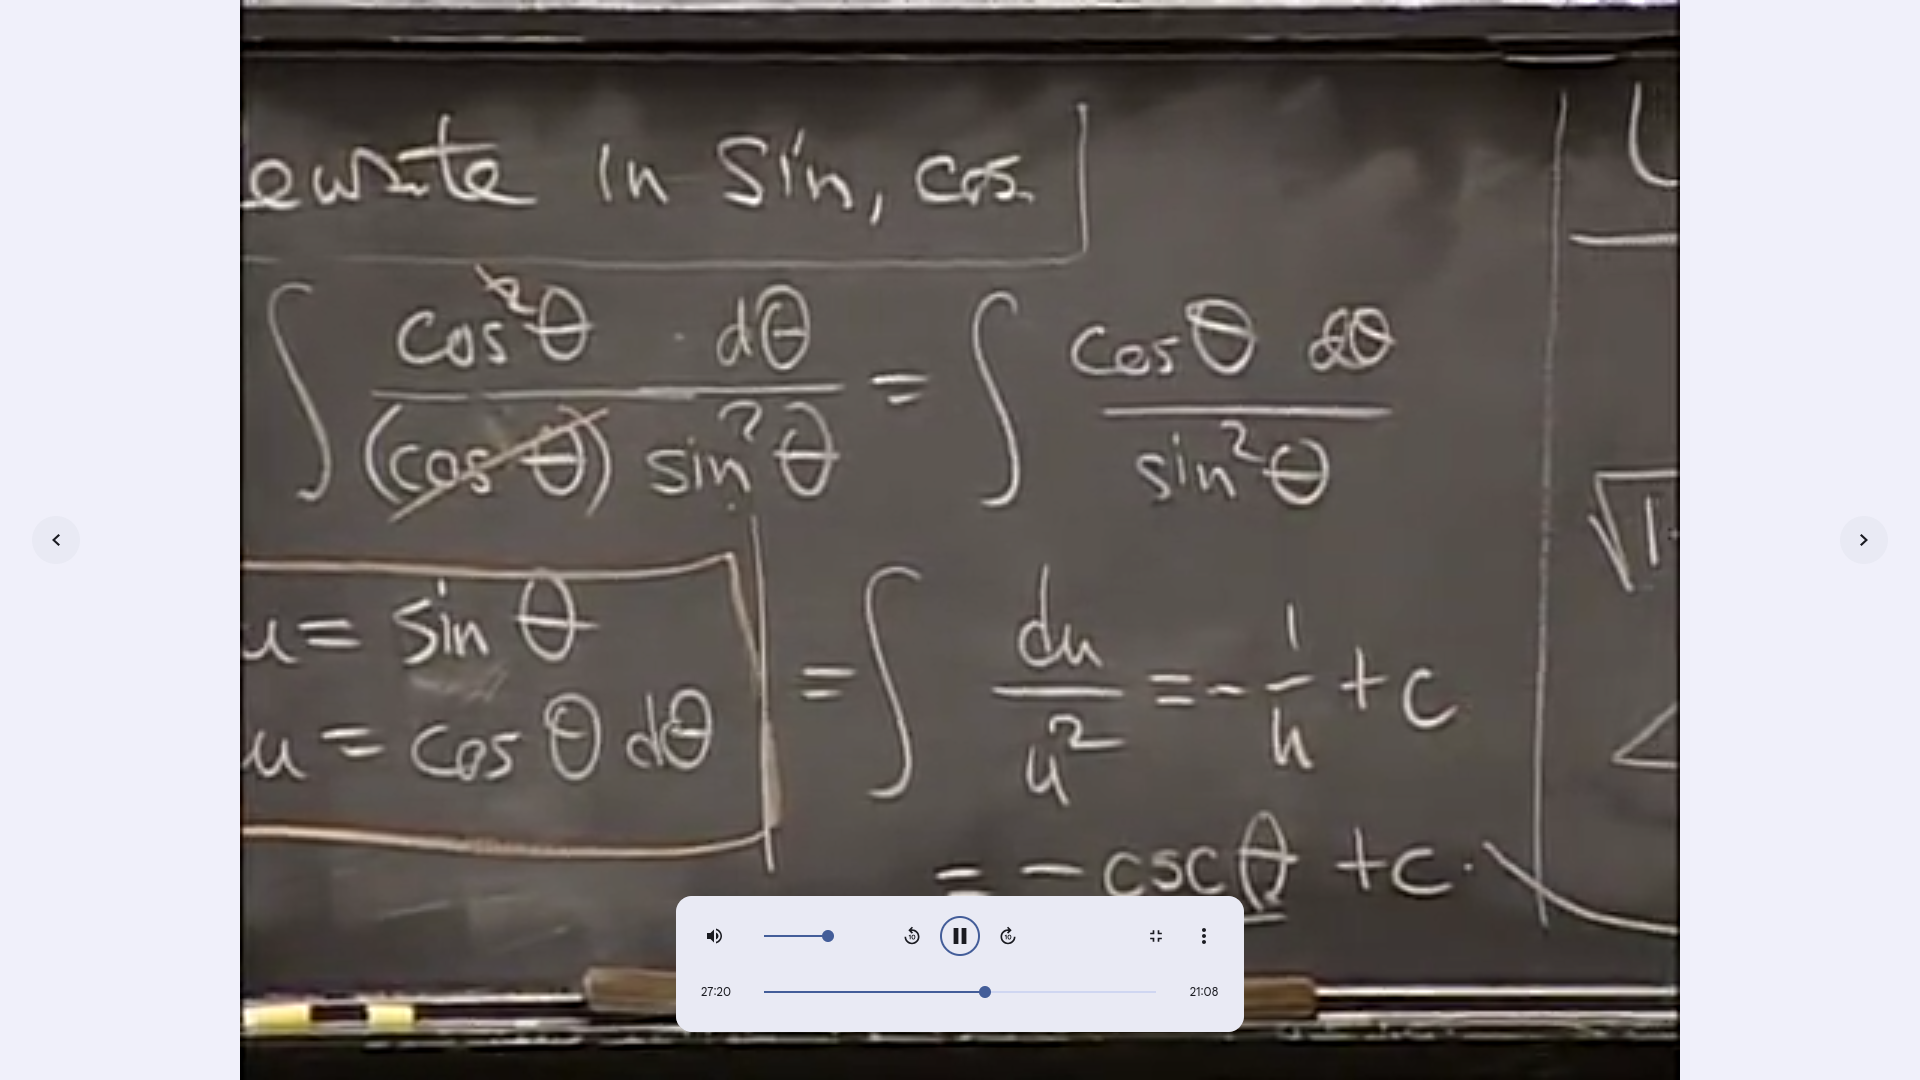 ewrite in sin, cos
∫ cos²θ · dθ / (cos θ) sin²θ = ∫ cosθ dθ / sin²θ
u = sin θ
u = cos θ dθ
= ∫ du / u² = - 1/u + c
= - csc θ + c.
√1-
27:20
21:08